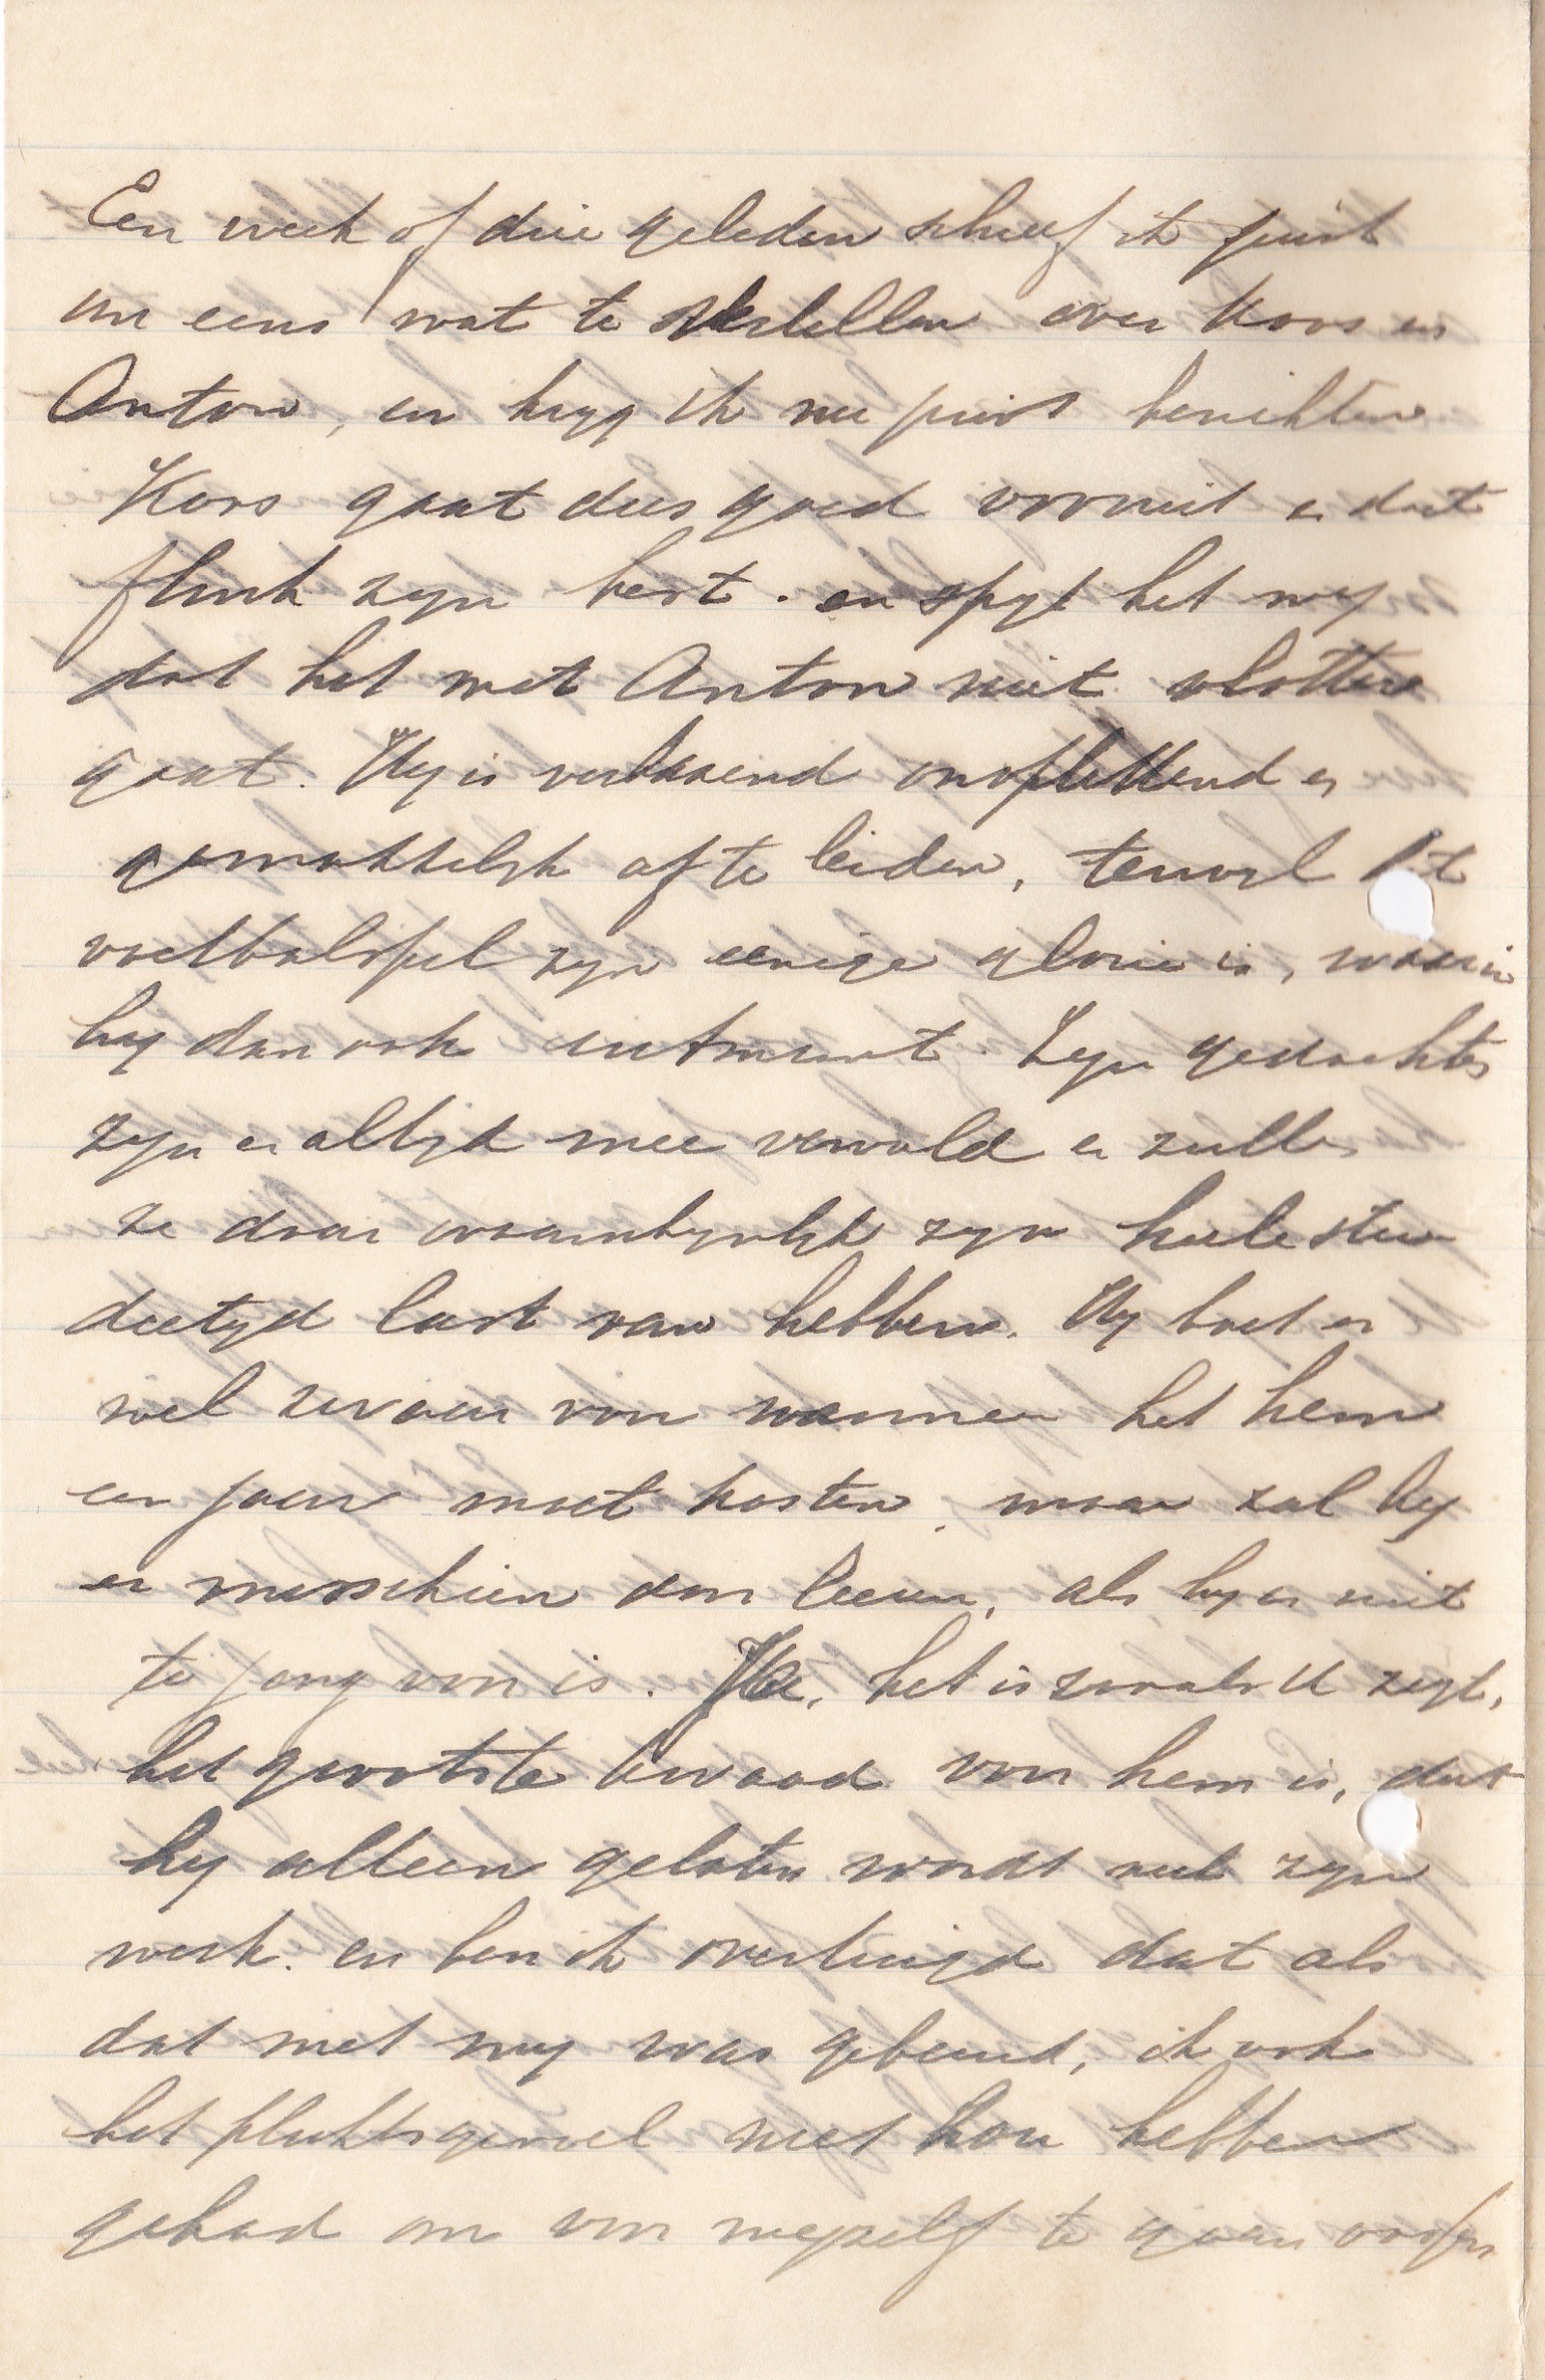 Een week of drie geleden schreef ik juist
om eens wat te vertellen over Koos en
Anton, en kryg ik nu juist berichten
Koos gaat dus goed vooruit en doet
flink zyn best. en spyt het my
dat het met Anton niet vlotter
gaat. Hy is verbazend onoplettend en
gemakkelyk af te leiden, terwyl het
voetbalspel zyn eenige glorie is, waarin
hy dan ook uitmunt. Zyn gedachten
zyn er altyd mee vervuld en zullen
ze daar waarschynlyk zyn heele stu
dietyd last van hebben. Hy boet er
wel zwaar voor wanneer het hem
een jaar moet kosten, maar zal hy
er misschien door leeren, als hy er niet
te jong voor is. Ja, het is zooals U zegt,
het grootste kwaad voor hem is, dat
hy alleen gelaten wordt met zyn
werk. en ben ik overtuigd dat als
dat met my was gebeurd, ik ook
het plichtsgevoel niet zou hebben
gehad om voor myzelf te gaan